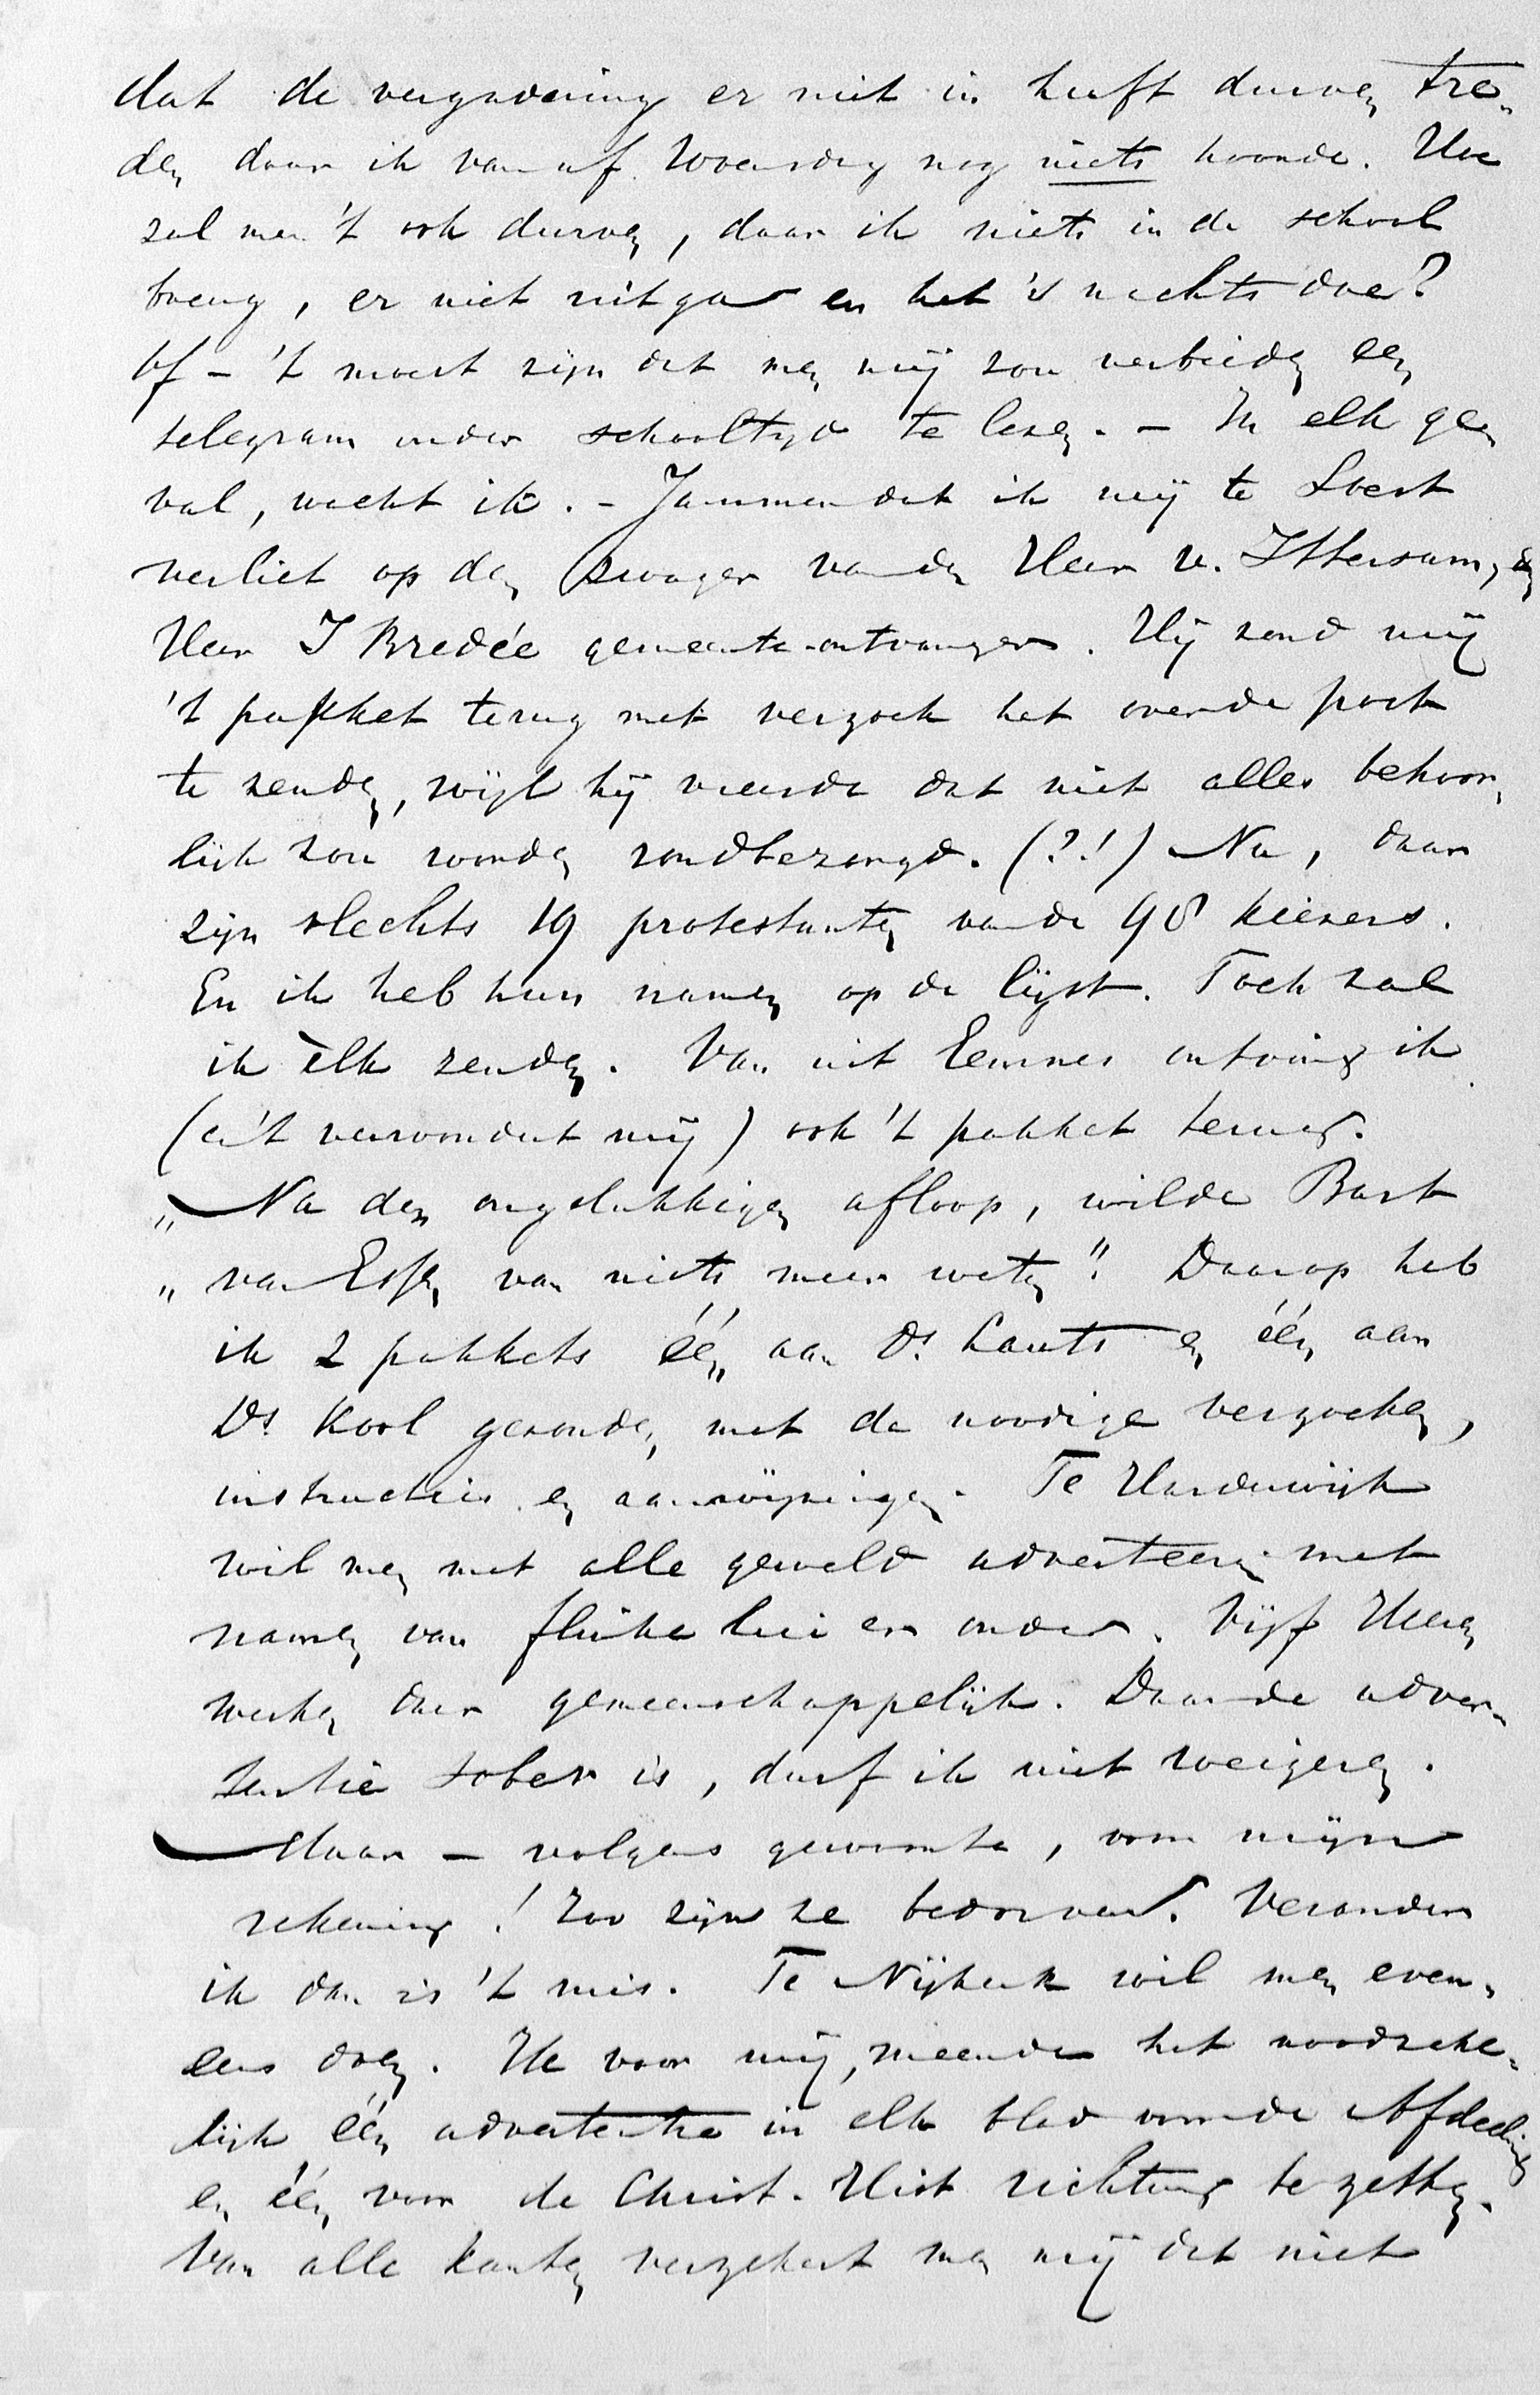 dat de vergadering er niet in heeft durven tre„
den daar ik vanaf Woensdag nog niets hoorde. Hoe
zal men 't ook durven, daar ik niets in de school
breng, er niet uitga en het 's nachts doe?
Of – 't moest zijn dat men mij zou verbieden een
telegram onder schooltijd te lezen. – In elk ge„
val, wacht ik. – Jammer dat ik mij te Soest
verliet op den zwager van den Heer v. Ittersum, den
Heer J Bredée gemeente-ontvanger. Hij zond mij
't pakket terug met verzoek het over de post
te zenden, wijl hij vreesde dat niet alles behoor„
lijk zou worden rondbezorgd. (?!) Nu, daar
zijn slechts 19 protestanten van de 98 kiezers.
En ik heb hun namen op de lijst. Toch zal
ik èlk zenden. Van uit Eemnes ontving ik
(en 't verwondert mij) ook 't pakket terug.
„ Na den ongelukkigen afloop, wilde Bart
„ van Essen van niets meer weten". Daarop heb
ik 2 pakkets één aan Ds. Lauts en één aan
Ds. Kool gezonden met de noodige verzoeken,
instructies en aanwijzingen. Te Harderwijk
wil men met alle geweld adverteeren met
namen van flinke lui er onder. Vijf Heeren
werken daar gemeenschappelijk. Daar de adver„
tentie sober is, durf ik niet weigeren.
Maar – volgens gewoonte, voor mijne
rekening! Zoo zijn ze bedorven. Verander
ik dan is 't mis. Te Nijkerk wil men even„
eens doen. Ik voor mij, meende het noodzake„
lijk één advertentie in elk blad van de Afdeeling
en één voor de Christ. Hist richting te zetten.
Van alle kanten verzekert men mij dat niet